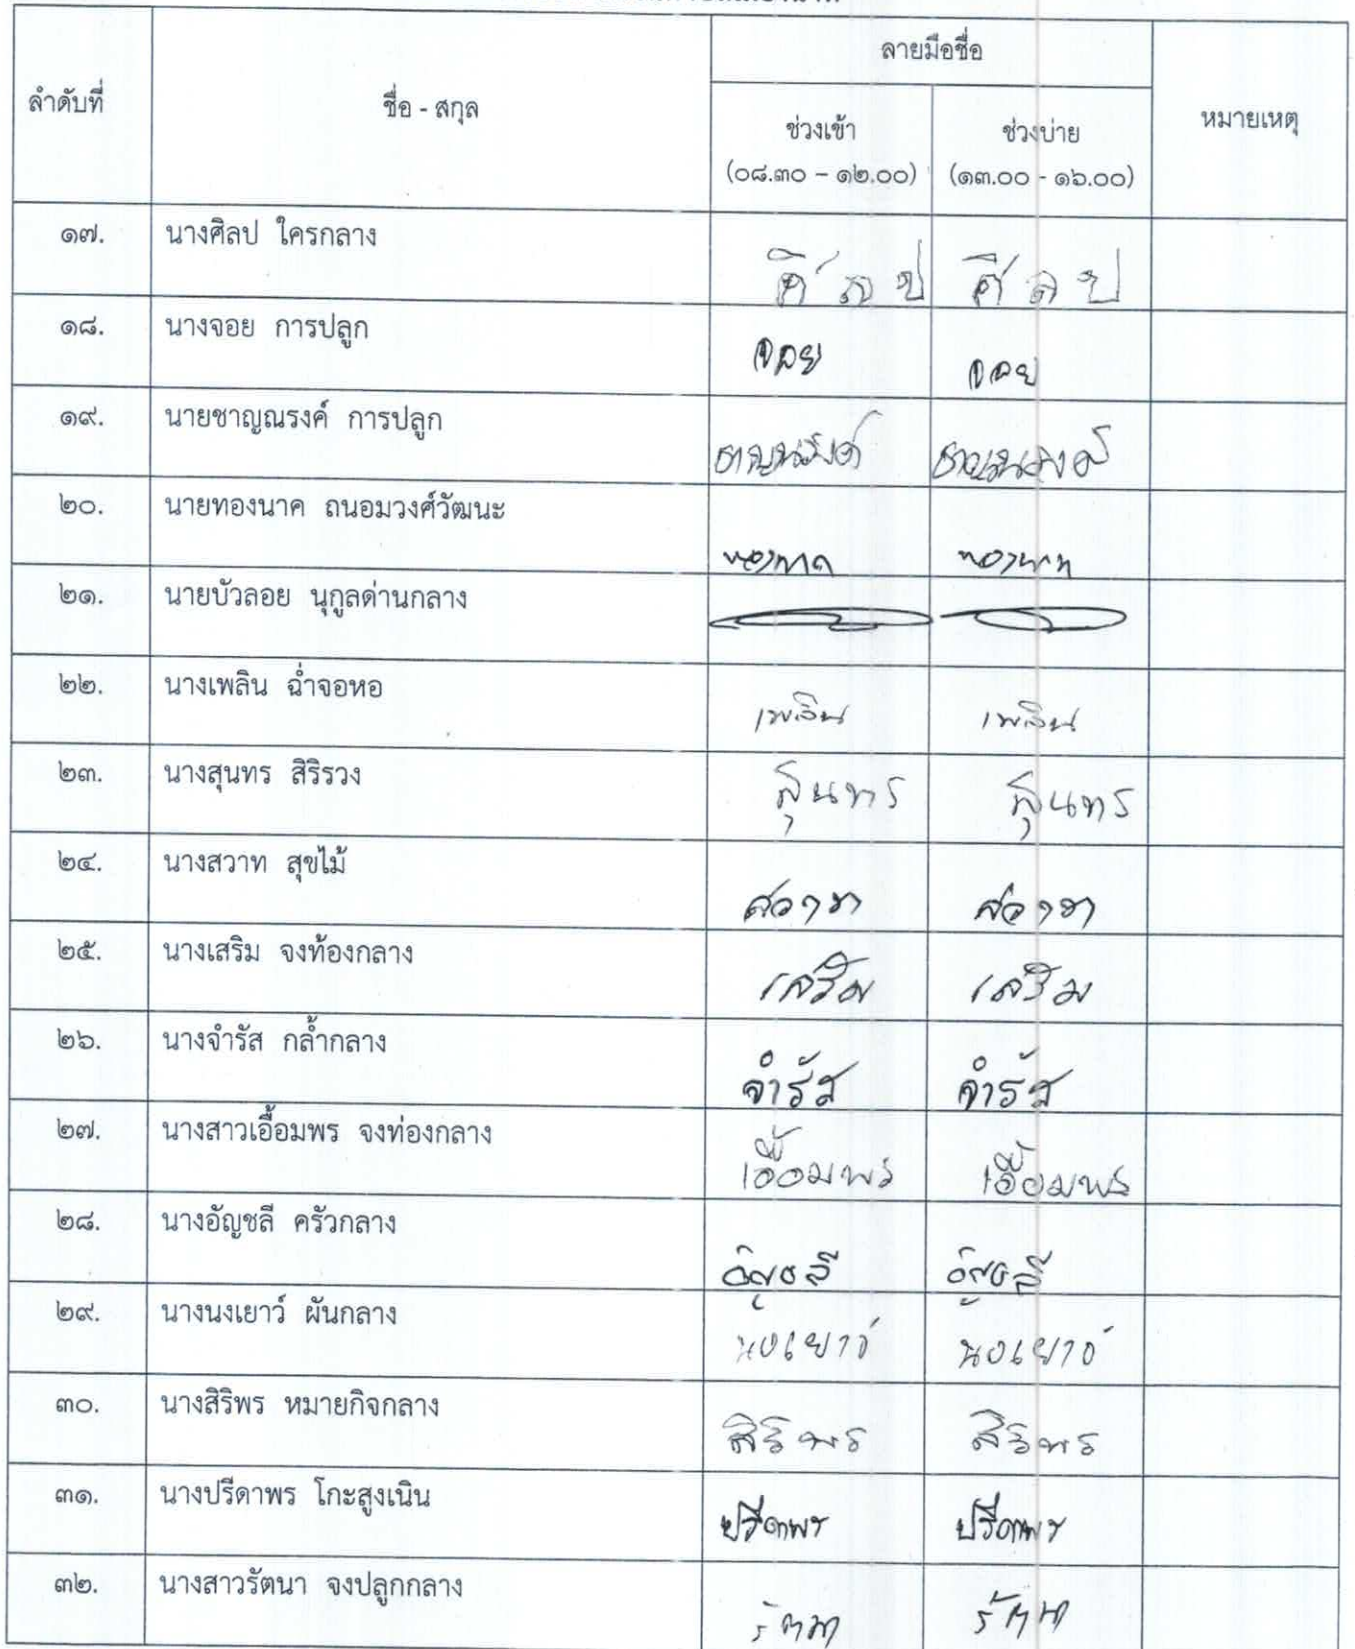 ลายมือชื่อ
ลำดับที่ ชื่อ - สกุล หมายเหตุ
ช่วงเข้า ช่วงบ่าย
(๐๘.๓๐ - ๑๒.๐๐) (๑๓.๐๐ - ๑๖.๐๐)
๑๗. นางศิลป ใครกลาง
ศิลป ศิลป
๑๘. นางจอย การปลูก
จอย จอย
๑๙. นายชาญณรงค์ การปลูก
๒๐. นายทองนาค ถนอมวงศ์วัฒนะ
๒๑. นายบัวลอย นุกูลด่านกลาง
๒๒. นางเพลิน ฉ่ำจอหอ
เพลิน เพลิน
๒๓. นางสุนทร สิริรวง
สุนทร สุนทร
๒๔. นางสวาท สุขไม้
๒๕. นางเสริม จงท้องกลาง
เสริม เสริม
๒๖. นางจำรัส กล้ำกลาง
จำรัส จำรัส
๒๗. นางสาวเอื้อมพร จงท่องกลาง
เอื้อมพร เอื้อมพร
๒๘. นางอัญชลี ครัวกลาง
อัญชลี อัญชลี
๒๙. นางนงเยาว์ ผันกลาง
นงเยาว์ นงเยาว์
๓๐. นางสิริพร หมายกิจกลาง
สิริพร สิริพร
๓๑. นางปรีดาพร โกะสูงเนิน
ปรีดาพร ปรีดาพร
๓๒. นางสาวรัตนา จงปลูกกลาง
รัตนา รัตนา